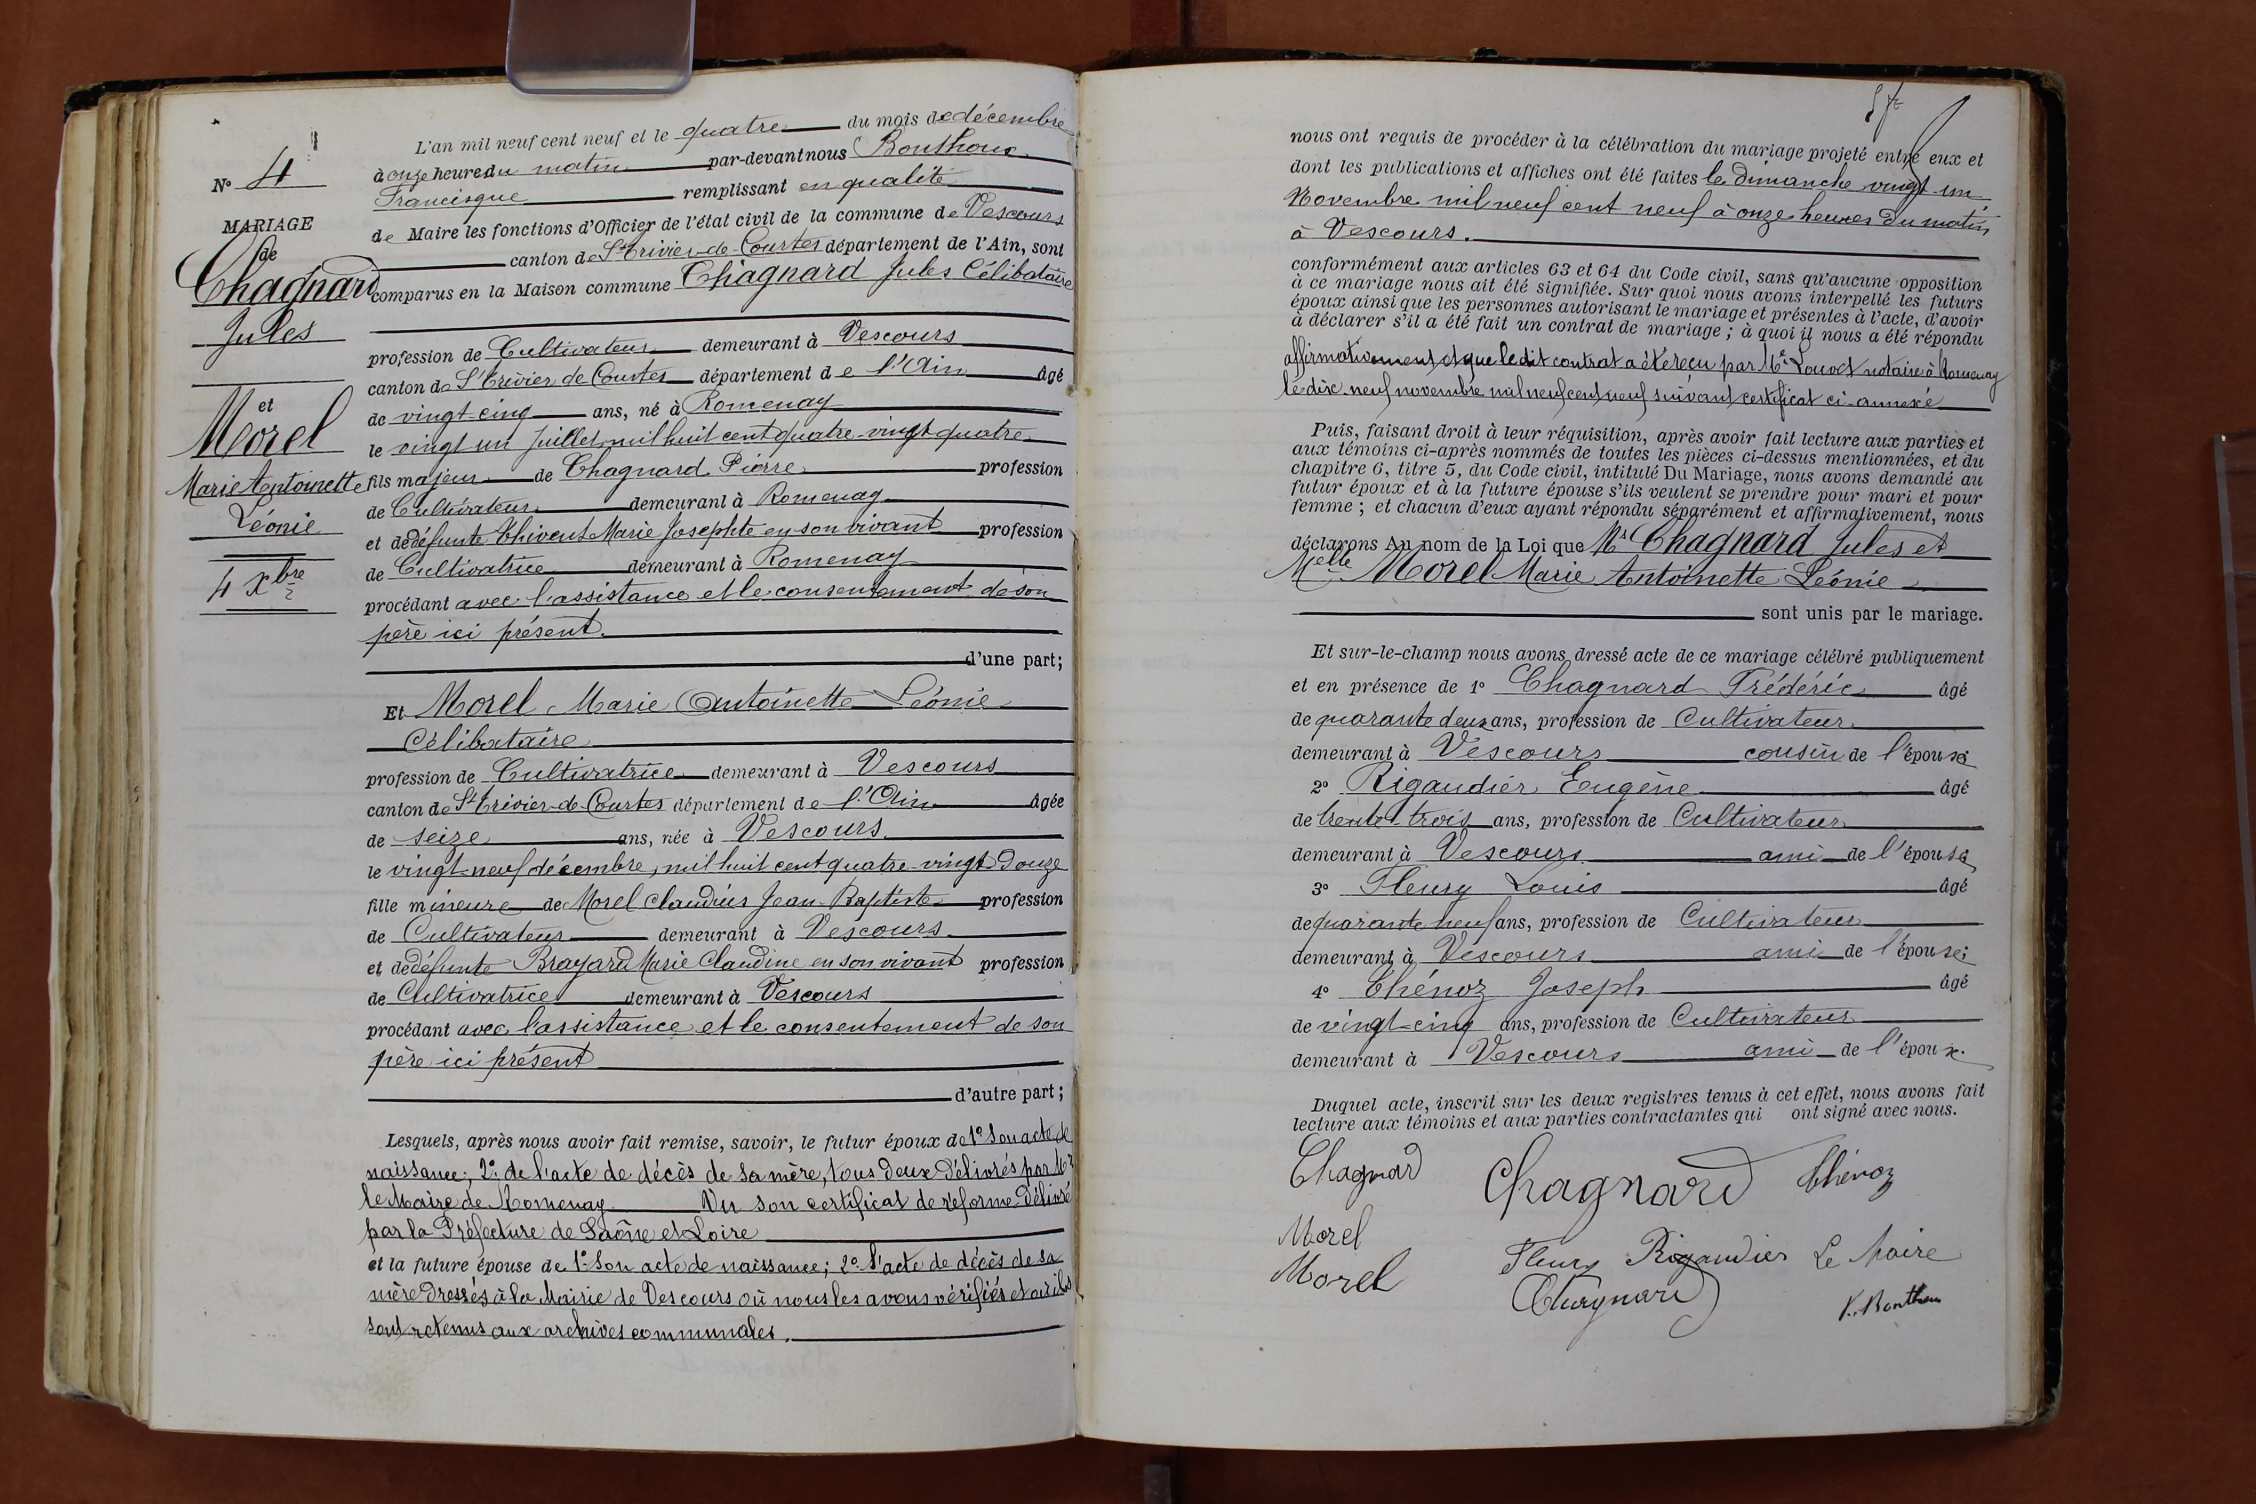 N° 4
MARIAGE
de
Chagnard
Jules
et
Morel
Marie Antoinette
Léonie
4 Xbre
L'an mil neuf cent neuf et le quatre du mois de décembre
à onze heures du matin par-devant nous Bonthoux
Francisque remplissant en qualité
de Maire les fonctions d'Officier de l'état civil de la commune de Vescours
canton de St Trivier-de-Courtes département de l'Ain, sont
comparus en la Maison commune Chagnard Jules Célibataire
profession de Cultivateur demeurant à Vescours
canton de St Trivier de Courtes département de l'Ain âgé
de vingt-cinq ans, né à Romenay
le vingt un Juillet mil huit cent quatre-vingt quatre
fils majeur de Chagnard Pierre profession
de Cultivateur demeurant à Romenay
et de défunte Thivent Marie Josephte en son vivant profession
de Cultivatrice demeurant à Romenay
procédant avec l'assistance et le consentement de son
père ici présent.
d'une part;
Et Morel Marie Antoinette Léonie
Célibataire
profession de Cultivatrice demeurant à Vescours
canton de St Trivier-de-Courtes département de l'Ain âgée
de seize ans, née à Vescours
le vingt-neuf décembre, mil huit cent quatre-vingt Douze
fille mineure de Morel Claudius Jean-Baptiste profession
de Cultivateur demeurant à Vescours
et de défunte Brayard Marie Claudine en son vivant profession
de Cultivatrice demeurant à Vescours
procédant avec l'assistance et le consentement de son
père ici présent
d'autre part;
Lesquels, après nous avoir fait remise, savoir, le futur époux de 1° Son acte de
naissance; 2° de l'acte de décès de sa mère, tous deux délivrés par Mr
le Maire de Romenay Vu son certificat de réforme délivré
par la Préfecture de Saône et Loire
et la future épouse de 1° Son acte de naissance; 2° l'acte de décès de sa
mère dressés à la Mairie de Vescours où nous les avons vérifiés et où ils
sont retenus aux archives communales.
nous ont requis de procéder à la célébration du mariage projeté entre eux et
dont les publications et affiches ont été faites le dimanche vingt-un
Novembre mil neuf cent neuf à onze heures du matin
à Vescours.
conformément aux articles 63 et 64 du Code civil, sans qu'aucune opposition
à ce mariage nous ait été signifiée. Sur quoi nous avons interpellé les futurs
époux ainsi que les personnes autorisant le mariage et présentes à l'acte, d'avoir
à déclarer s'il a été fait un contrat de mariage; à quoi il nous a été répondu
affirmativement et que ledit contrat a été reçu par Me Louvet notaire à Romenay
le dix neuf novembre mil neuf cent neuf suivant certificat ci-annexé
Puis, faisant droit à leur réquisition, après avoir fait lecture aux parties et
aux témoins ci-après nommés de toutes les pièces ci-dessus mentionnées, et du
chapitre 6, titre 5, du Code civil, intitulé Du Mariage, nous avons demandé au
futur époux et à la future épouse s'ils veulent se prendre pour mari et pour
femme; et chacun d'eux ayant répondu séparément et affirmativement, nous
déclarons Au nom de la Loi que Mr Chagnard Jules et
Melle Morel Marie Antoinette Léonie
sont unis par le mariage.
Et sur-le-champ nous avons dressé acte de ce mariage célébré publiquement
et en présence de 1° Chagnard Frédéric âgé
de quarante deux ans, profession de Cultivateur
demeurant à Vescours cousin de l'épouse
2° Rigaudier Eugène âgé
de trente-trois ans, profession de Cultivateur
demeurant à Vescours ami de l'épouse
3° Fleury Louis âgé
de quarante neuf ans, profession de Cultivateur
demeurant à Vescours ami de l'épouse;
4° Thénoz Joseph âgé
de vingt-cinq ans, profession de Cultivateur
demeurant à Vescours ami de l'époux.
Duquel acte, inscrit sur les deux registres tenus à cet effet, nous avons fait
lecture aux témoins et aux parties contractantes qui ont signé avec nous.
Chagnard Chagnard Thénoz
Morel
Fleury Rigaudier Le Maire
Morel Chagnard F. Bonthoux